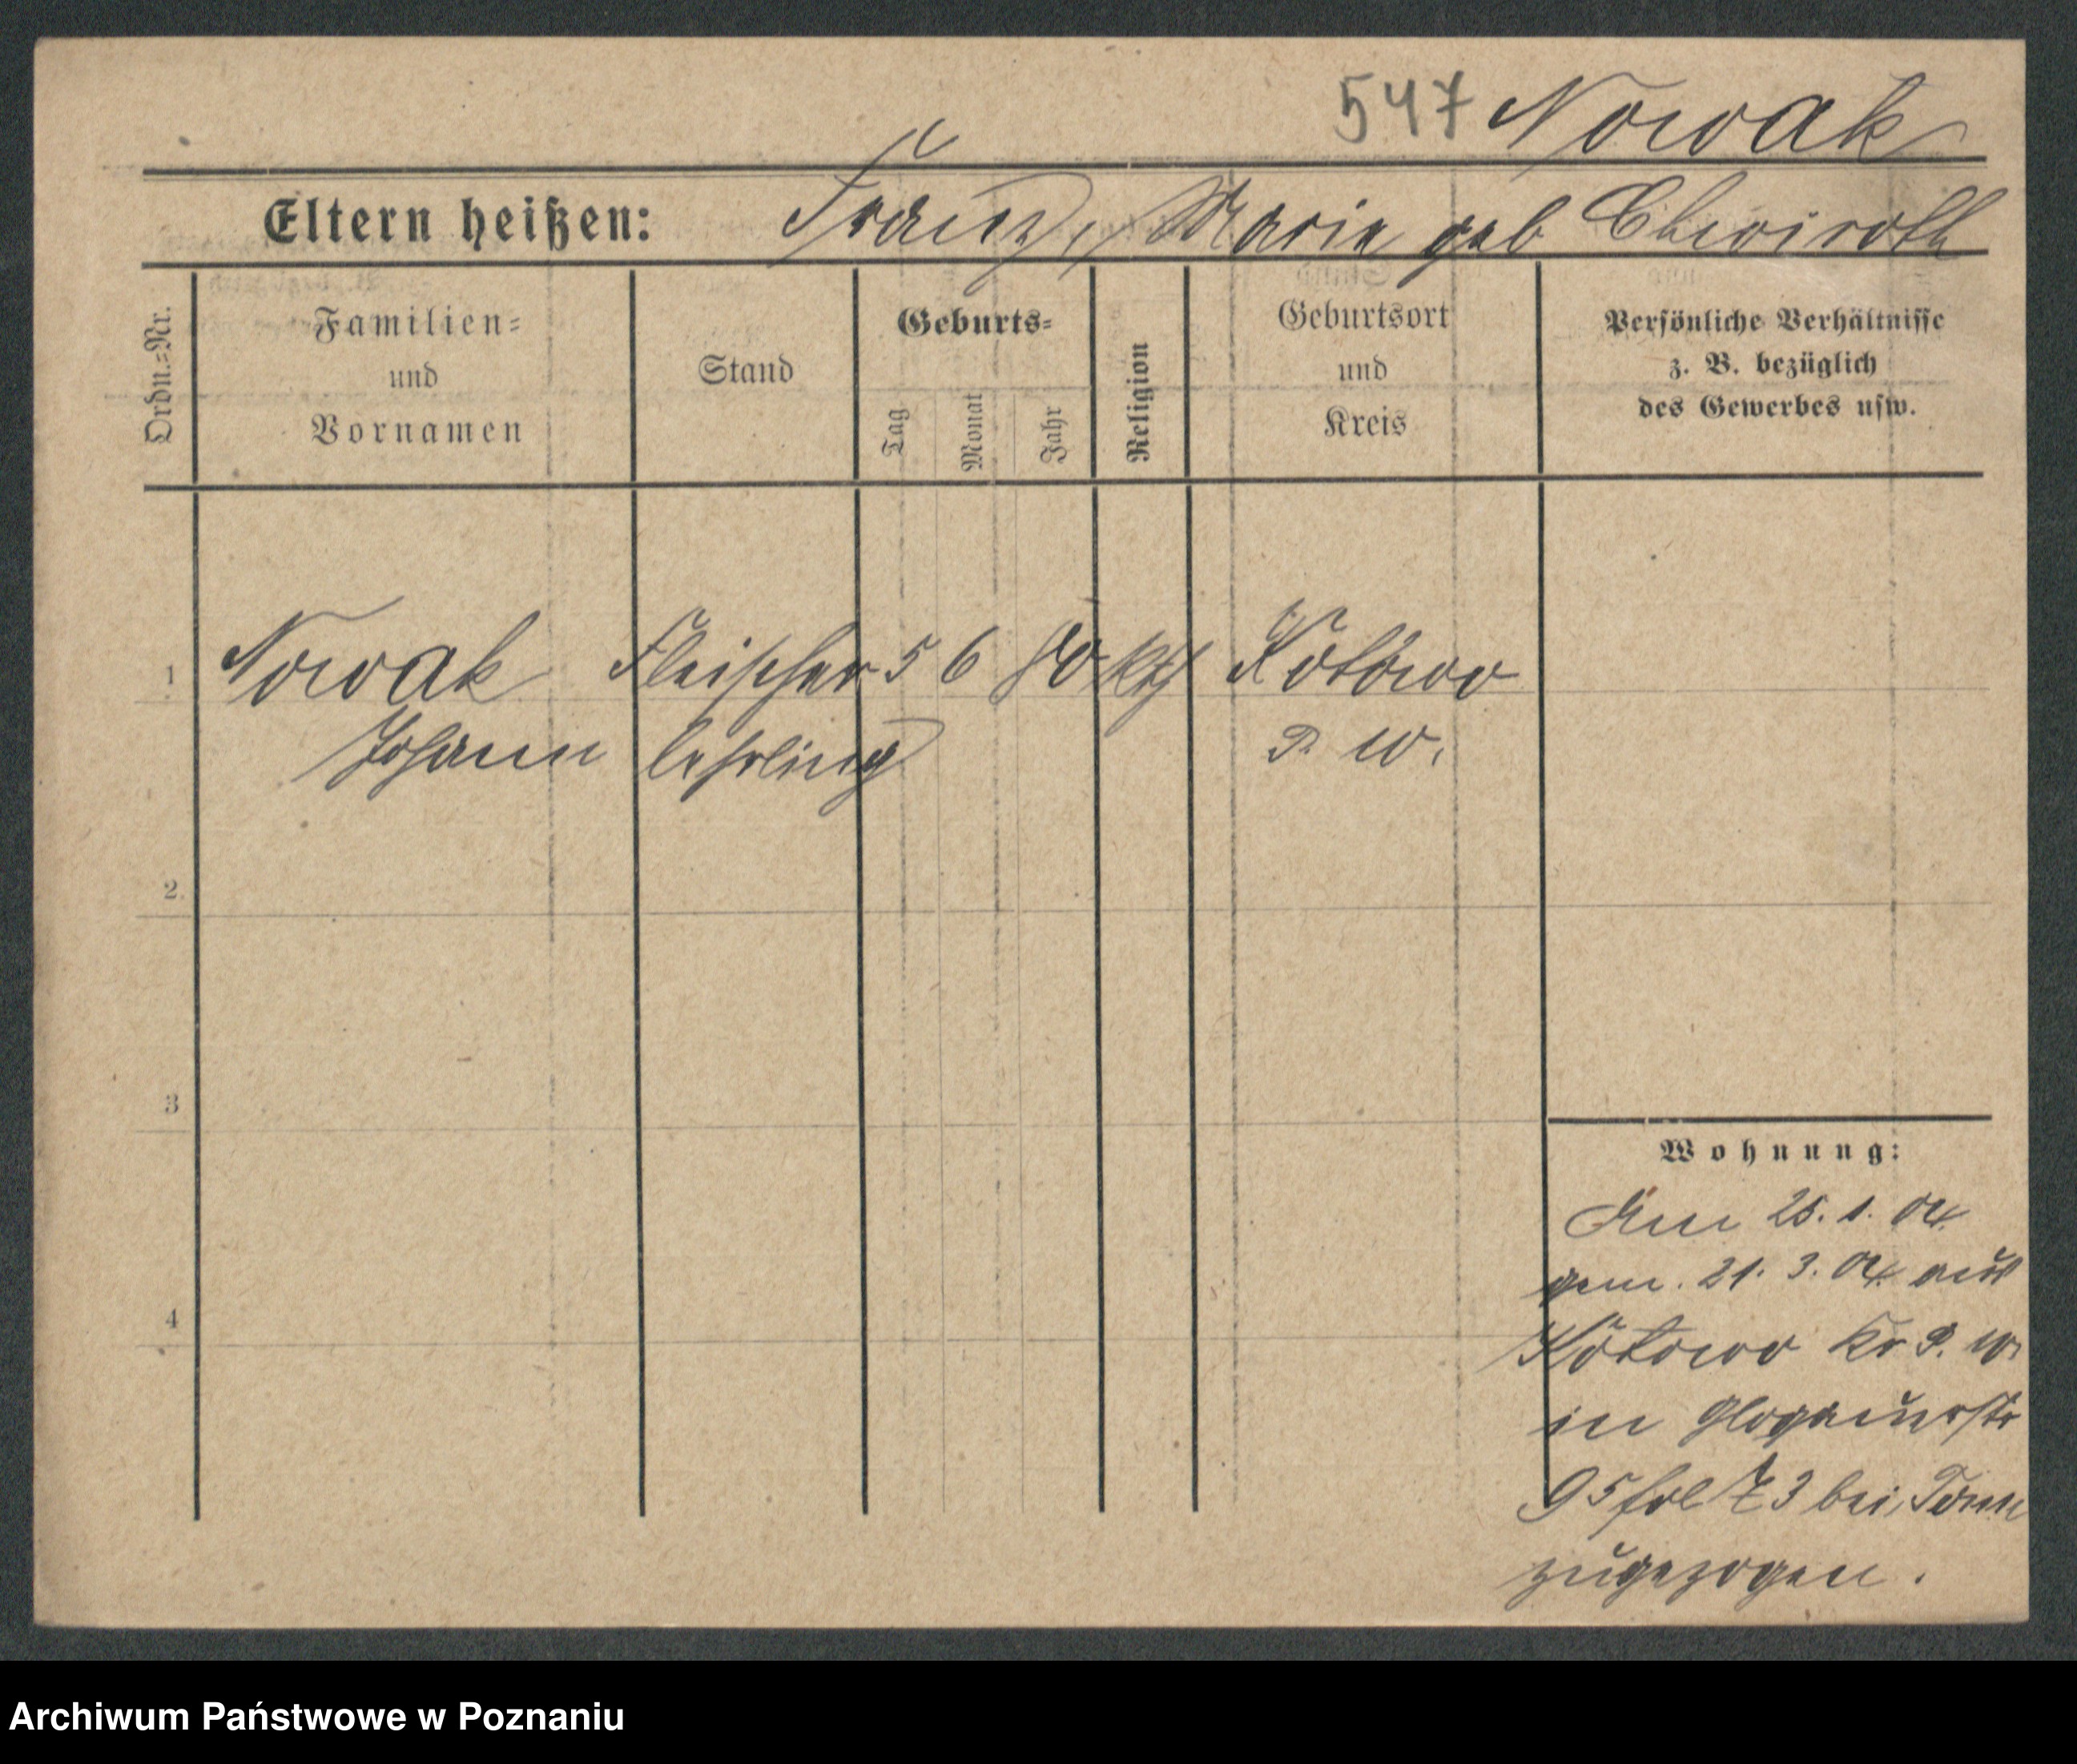 547 Nowak
Eltern heißen: Franz, Marie geb
Ordn.=Nr.
Familien=
und
Vornamen
Stand
Geburts=
Tag
Monat
Jahr
Religion
Geburtsort
und
Kreis
Persönliche Verhältnisse
z. B. bezüglich
des Gewerbes usw.
1 Nowak Fleischer 5 6 kth Kotowo
Johann lehrling P. W.
2.
3
4
Wohnung:
Am 25. 1. 04.
gem. 21. 3. 04. aus
Kotowo Kr P. W.
in Glogauerstr
95 bei
zugezogen.
Archiwum Państwowe w Poznaniu